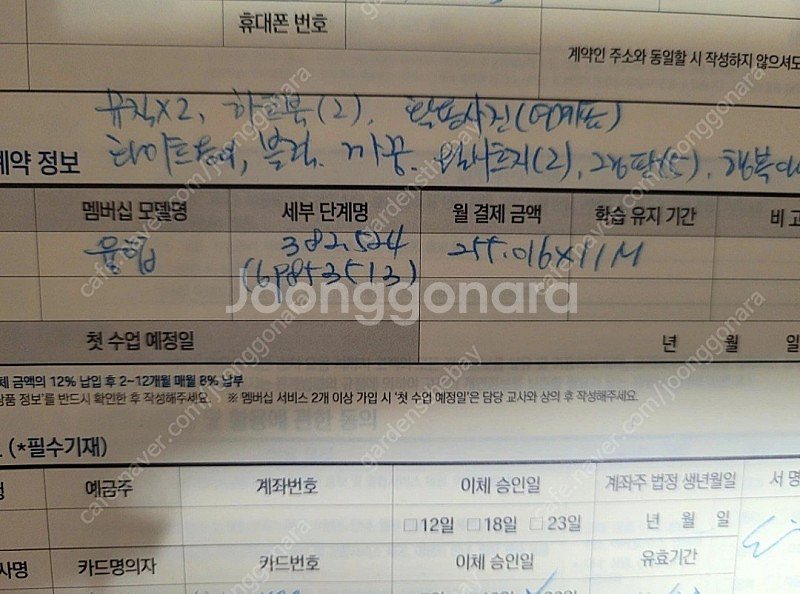 휴대폰 번호
계약인 주소와 동일할 시 작성하지 않으셔도
뮤직x2, 하트북(2),
블럭, 까꿍,
계약 정보
멤버십 모델명 세부 단계명 월 결제 금액 학습 유지 기간 비고
융합 382.524 255.016x11M
(69853513)
첫 수업 예정일 년 월 일
체 금액의 12% 납입 후 2~12개월 매월 8% 납부
상품 정보'를 반드시 확인한 후 작성해주세요. ※ 멤버십 서비스 2개 이상 가입 시 '첫 수업 예정일'은 담당 교사와 상의 후 작성해주세요.
(*필수기재)
예금주 계좌번호 이체 승인일 계좌주 법정 생년월일 서명
□12일 □18일 □23일 년 월 일
카드명의자 카드번호 이체 승인일 유효기간
Joonggonara
cafe.naver.com/joonggonara
gardenstbebay